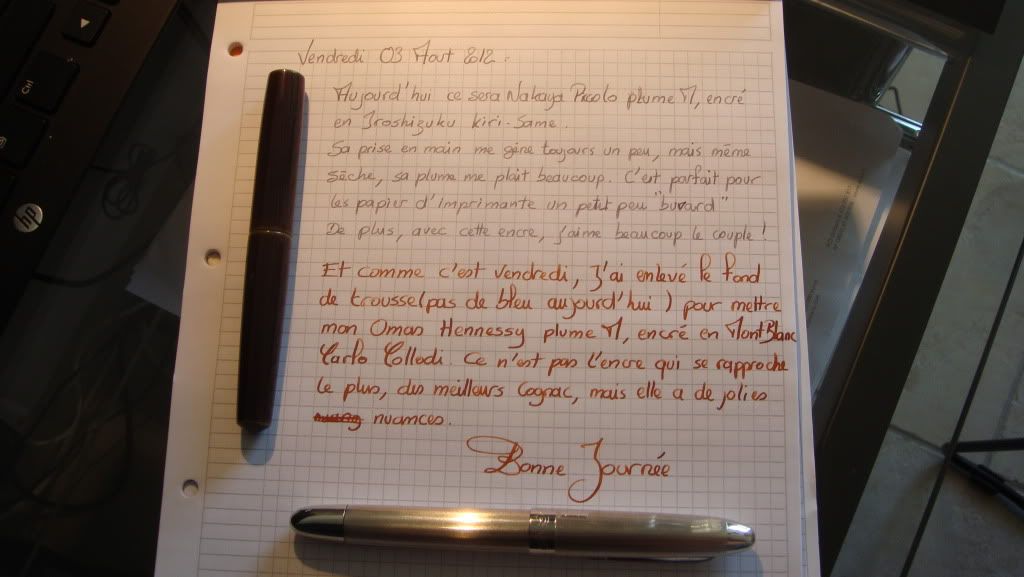 Vendredi 03 Aout 2012.
Aujourd'hui ce sera Nakaya Piccolo plume M, encré
en Iroshizuku kiri-Same.
Sa prise en main me gène toujours un peu, mais même
sèche, sa plume me plait beaucoup. C'est parfait pour
les papier d'imprimante un petit peu "buvard"
De plus, avec cette encre, j'aime beaucoup le couple !
Et comme c'est vendredi, J'ai enlevé le fond
de trousse (pas de bleu aujourd'hui) pour mettre
mon Omas Hennessy plume M, encré en MontBlanc
Carlo Collodi. Ce n'est pas l'encre qui se rapproche
le plus, des meilleurs Cognac, mais elle a de jolies
nuances.
Bonne Journée
Ctrl
hp